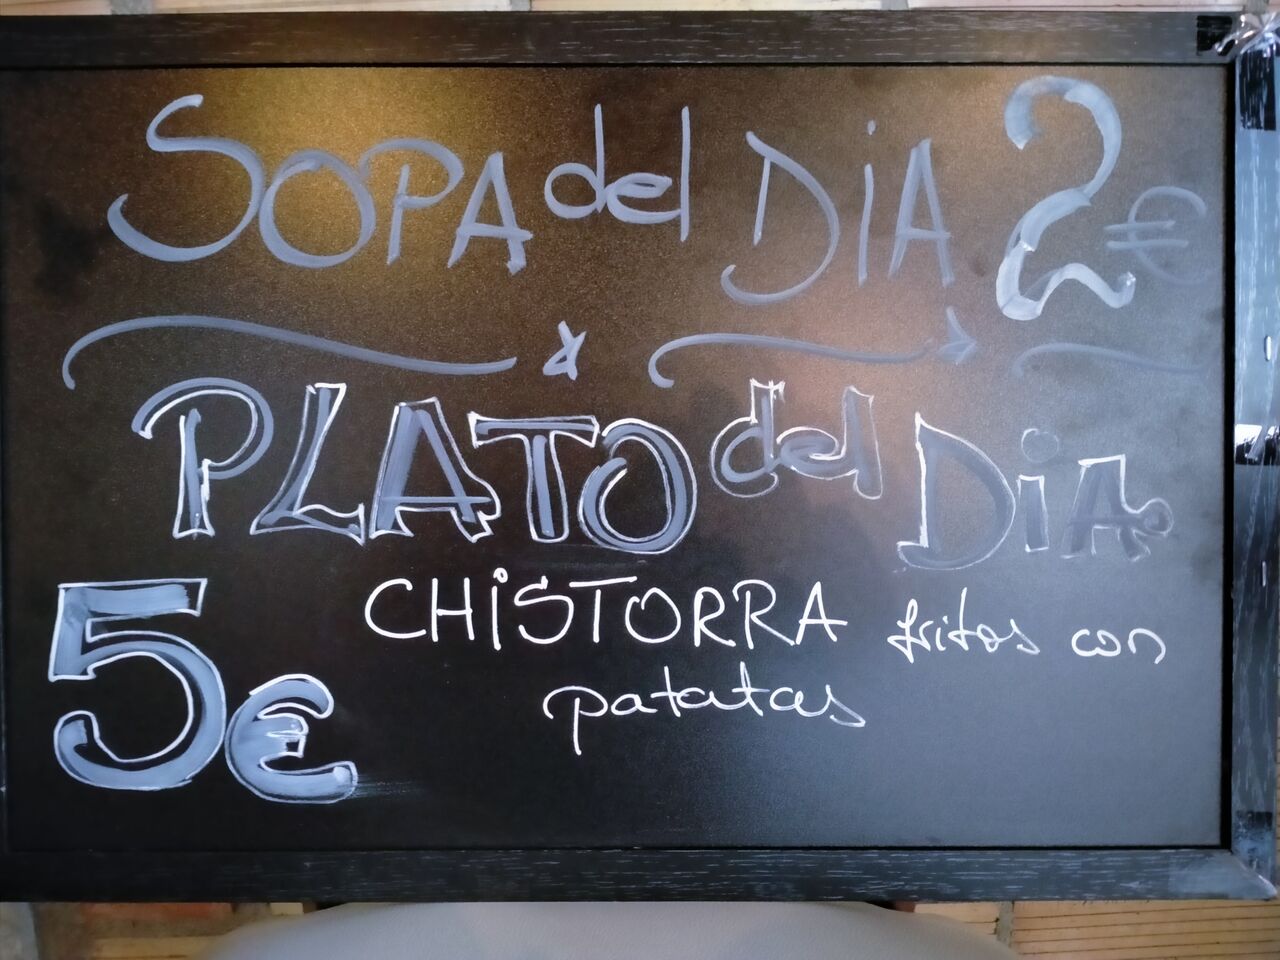 SOPA del DiA 2€
PLATO del DiA
5€ CHiSTORRA fritos con
patatas